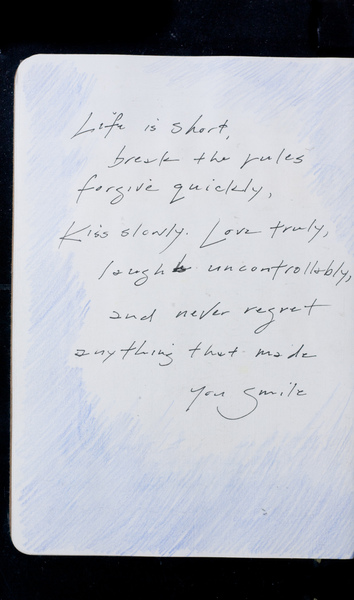 Life is short,
break the rules
forgive quickly,
Kiss slowly. Love truly,
laugh uncontrollably,
and never regret
anything that made
you smile